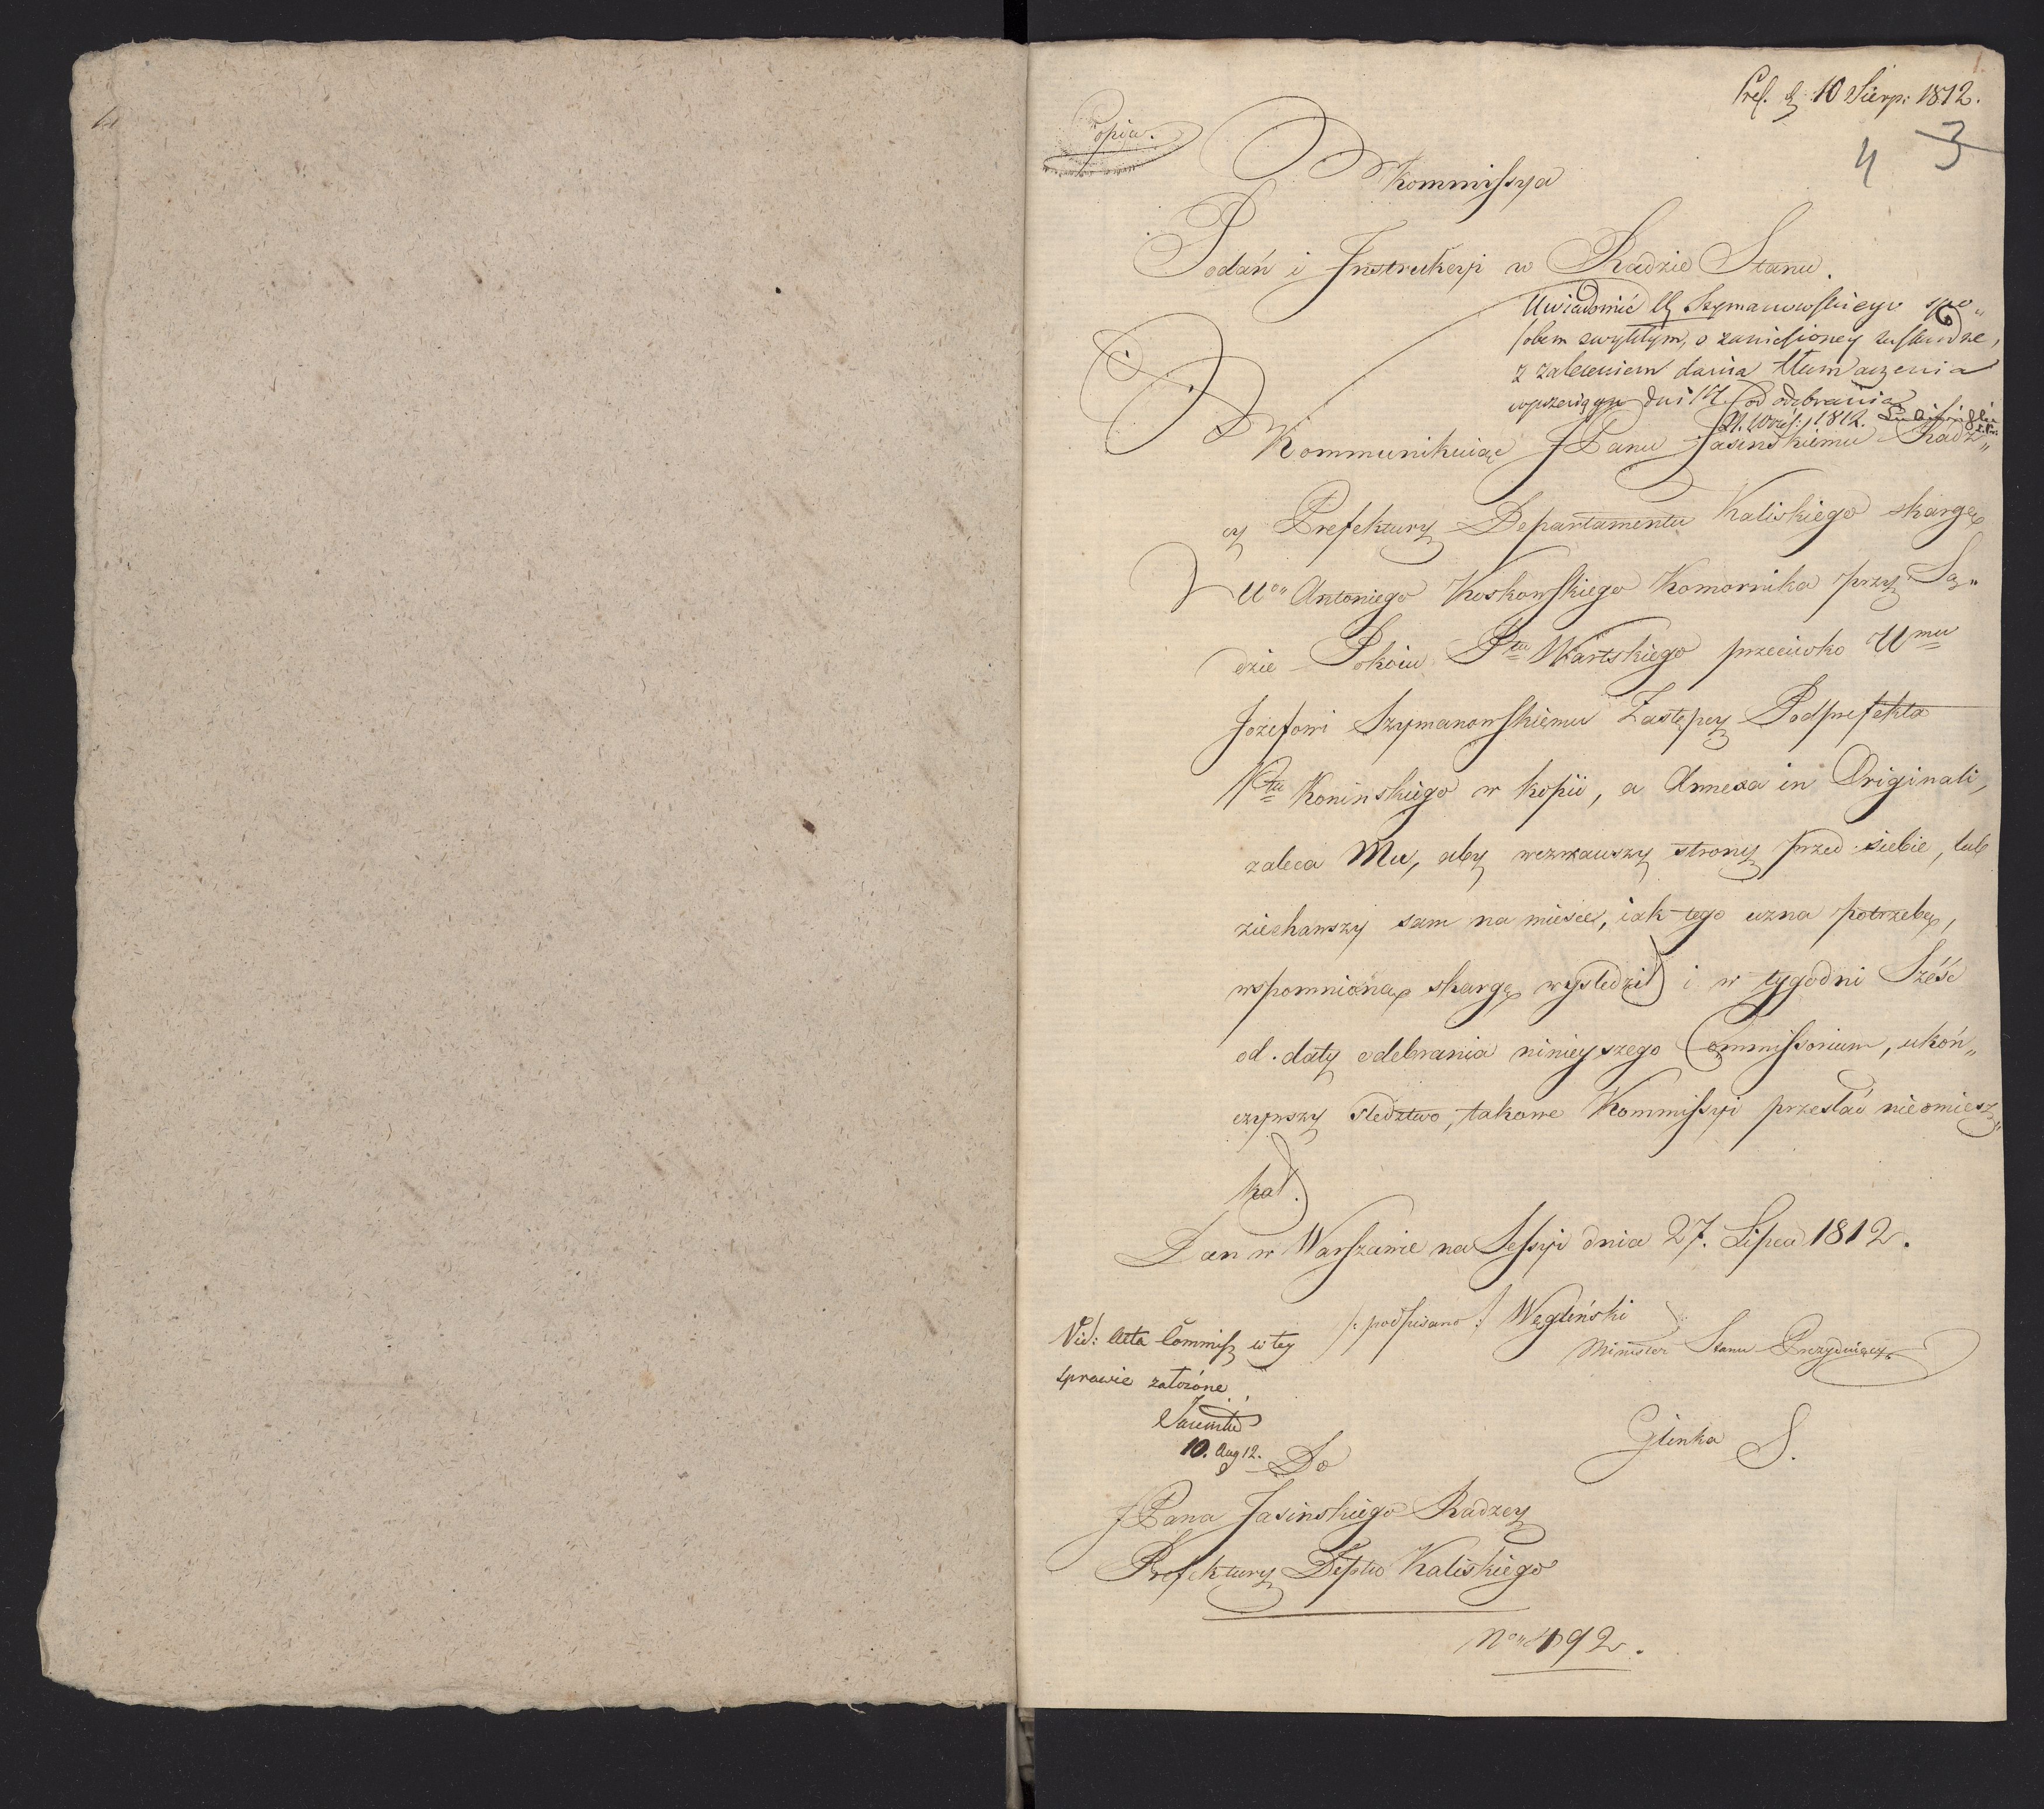 Pres. d. 10 Sierp: 1812.
4 3
Kopija.
Kommissya
Podań i Instrukcyi w Radzie Stanu.
Uwiadomić U. Szymanowskiego spo„
sobem zwykłym, o zaniesioney skardze,
z zaleceniem dania tłumaczenia
w przeciągu dni 14. od odebrania
1812.
Kommunikuiąc JPanu Jasinskiemu Radz„
cy Prefektury Departamentu Kaliskiego skargę
Uo„ Antoniego Koskowskiego Komornika przy Są„
dzie Pokoiu Ptu Wartskiego przeciwko Umu
Jozefowi Szymanowskiemu Zastępcy Podprefekta
Ptu Koninskiego w kopii, a Annexa in Originali,
zaleca Mu, aby wezwawszy strony przed siebie, lub
ziechawszy sam na miesce, iak tego uzna potrzebę,
wspomnioną skargę wysledził i w tygodni Sześć
od daty odebrania ninieyszego Commissorium, ukoń„
czywszy sledztwo, takowe Kommissyi przesłać nieomiesz„
kał.
Dan w Warszawie na Sessyi dnia 27. Lipca 1812.
/: podpisano :/ Węgleński
Minister Stanu Prezyduiący.
Vid: Acta Commiss w tey
sprawie założone
Jasinski
10. Aug 12.
Glinka S.
Do
JPana Jasinskiego Radzcy
Prefektury Deptu Kaliskiego
No„ 492.